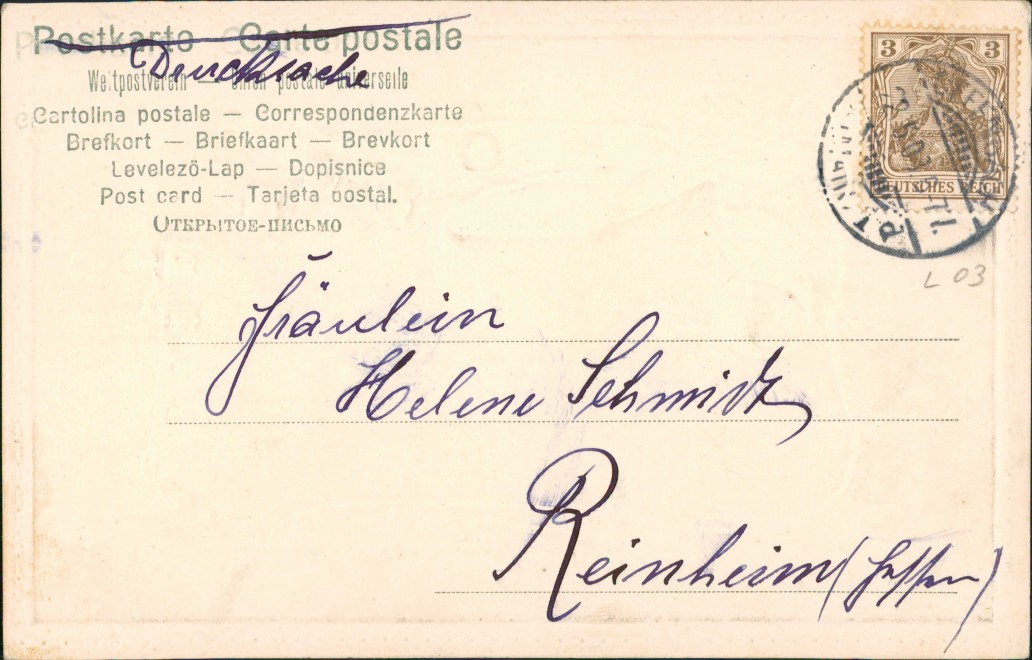 Postkarte Carte postale
Drucksache
Weltpostverein — Union postale universelle
Cartolina postale — Correspondenzkarte
Brefkort — Briefkaart — Brevkort
Levelező-Lap — Dopisnice
Post card — Tarjeta postal.
Открытое-письмо
3 3
DEUTSCHES REICH
L 03
Fräulein
Helene Schmidt
Reinheim (Hessen)